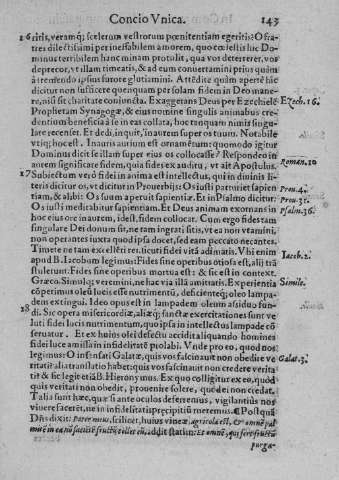 Concio Vnica. 143
16 ritis, veramq́; scelerum vestrorum pœnitentiam egeritis: O fra-
tres dilectissimi per ineffabilem amorem, quo cœlestis huc Do-
minus terribilem hanc minam protulit, qua vos deterreret, vos
deprecor, vt illam timeatis, & ad eum conuertamini prius quàm
à tremendo ipsius furore glutiamini. Attẽdite quàm apertè hîc
dicitur non sufficere quenquam per solam fidem in Deo mane-
re, nisi sit charitate coniuncta. Exaggerans Deus per Ezechielẽ Ezech. 16.
Prophetam Synagogæ, & eius nomine singulis animabus cre-
dentium beneficia à se in eas collata, hoc tenquam nimis singu-
lare recenset. Et dedi, inquit, inaurem super os tuum. Notabile
vtiq; hoc est. In auris autem est ornamẽtum: quomodo igitur
Dominus dicit se illam super eius os collocasse? Respondeo in
aurem significare fidem, quia fides ex auditu, vt ait Apostolus. Roman. 10
17 Subiectum verò fidei in anima est intellectus, qui in diuinis li-
teris dicitur os, vt dicitur in Prouerbijs: Os iusti parturiet sapien Prou. 4.
tiam, & alibi: Os suum aperuit sapientiæ. Et in Psalmo dicitur: Prou. 31.
Os iusti meditabitur sapientiam. Et Deus animam exornans in Psalm. 36.
hoc eius ore inaurem, idest, fidem collocat. Cum ergo fides tam
singulare Dei donum sit, ne tam ingrati sitis, vt ea non vtamini,
non operantes iuxta quod ipsa docet, sed eam peccato necantes.
Timete ne tam excelléti re, sicuti fidei vita adimatis. Vbi enim
apud B. Iacobum legimus: Fides sine operibus otiosa est, alij trã Iacob. 2.
stulerunt. Fides sine operibus mortua est: & sic est in context.
Græco. Simulq; veremini, ne hac via illà amittatis. Experientia Simile.
cõperimus oleo lucis esse nutrimentũ, deficienteq́; oleo lampa-
dem extingui. Ideo opus est in lampadem oleum assidue fun-
18 di. Sic opera misericordiæ, aliæq́; sanctæ exercitationes sunt ve
luti fidei lucis nutrimentum, quo ipsa in intellectus lampade cõ
seruatur. Et ex huius olei defectu accidit aliquando homines
fidei luce amissa in infidelitatẽ prolabi. Vnde pro eo, quod nos
legimus: O insensati Galatæ, quis vos fascinauit non obedire ve Galat. 3.
ritati? alia translatio habet: quis vos fascinauit non credere verita
ti? & sic legit etiã B. Hieronymus. Ex quo colligitur ex eo, quòd
quis veritati non obediet, prouenire solere, quòd ei non credat.
Talia sunt hæc, quæ si ante oculos deferremus, vigilantiùs nos
viuere faceret, ne in infidelitatis præcipitiũ metemus. ¶ Postquã
Dñs dixit: Pater meus, scilicet, huius vineæ agricola est, & omnẽ pal
mitẽ in eo nõ faciétẽ fructũ tollet eũ, addit statim: Et omnẽ, qui fert fructũ
purga-